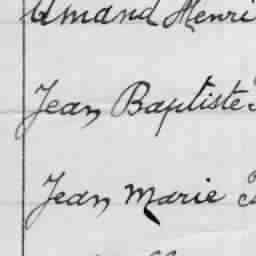 Amand Henri
Jean Baptiste
Jean Marie